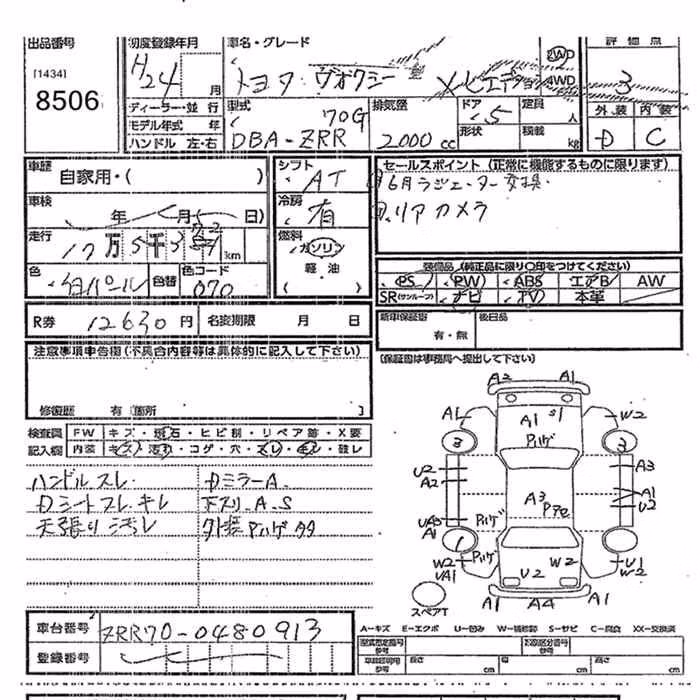 出品番号
[1434]
8506
初度登録年月
H24 月
ディーラー・並 行
モデル年式 年
ハンドル 左・右
車名・グレード
トヨタ ヴォクシー
2WD
4WD
型式
70G
DBA-ZRR
排気量
2000 cc
ドア
5
形状
定員
人
積載
kg
評価点
3
外装 内装
D C
車歴
自家用・( )
車検
年 月 日)
走行
17万5千3 km
色
白パール
色替
色コード
070
シフト
AT
冷房
有
燃料
ガソリン
軽・油
( )
セールスポイント (正常に機能するものに限ります)
リアカメラ
装備品 (純正品に限り○印をつけてください)
PS PW ABS エアB AW
SR(サンルーフ) ナビ TV 本革
R券 12630 円 名変期限 月 日
新車保証書
有・無
後日品
[保証書は事務局へ提出して下さい]
注意事項申告欄(不具合内容等は具体的に記入して下さい)
修復歴 有 [箇所 ]
検査員
記入欄
FW キズ・飛石・ヒビ割・リペア跡・X要
内装 キズ・汚れ・コゲ・穴・スレ・キレ・破レ
ハンドルスレ DミラーA.
Dシートスレ キレ 下スリ.A.S
天張り
A2 A1
A1 A1 S1 W2
ハゲ
3 3
U2 A3
A2
A3 A1
U2
Pハゲ
A1
1
Pハゲ
W2 W2 U1
UA1 U2 W2
A1 A4 A1
スペアT
車台番号
ZRR70-0480913
登録番号
A-キズ E-エクボ U-凹み W-補修跡 S-サビ C-腐食 XX-交換済
型式指定番号
参考
類別区分番号
参考
車検証利用
参考
長さ cm 幅 cm 高さ cm